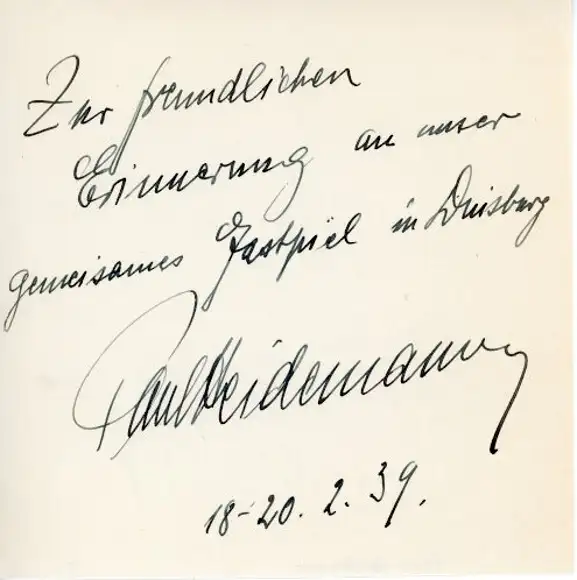 Zur freundlichen
Erinnerung an unser
gemeisames Gastspiel in Duisburg
Paul Heidemann
18-20. 2. 39.